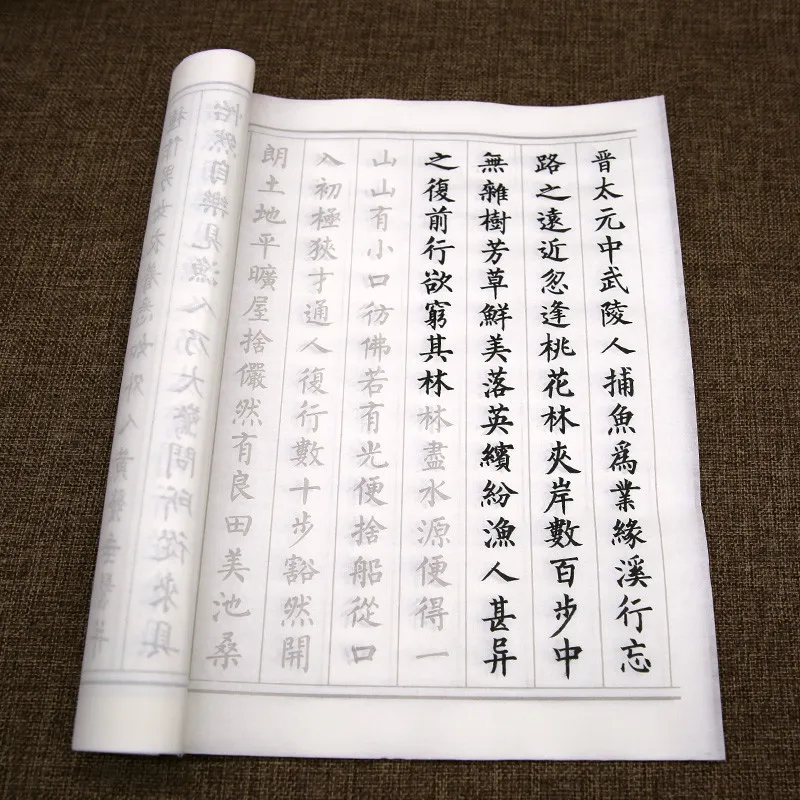 晉太元中武陵人捕魚爲業緣溪行忘
路之遠近忽逢桃花林夾岸數百步中
無雜樹芳草鮮美落英繽紛漁人甚异
之復前行欲窮其林林盡水源便得一
山山有小口彷佛若有光便捨船從口
入初極狹才通人復行數十步豁然開
朗土地平曠屋捨儼然有良田美池桑
怡然自樂見漁人乃大驚問所從來具